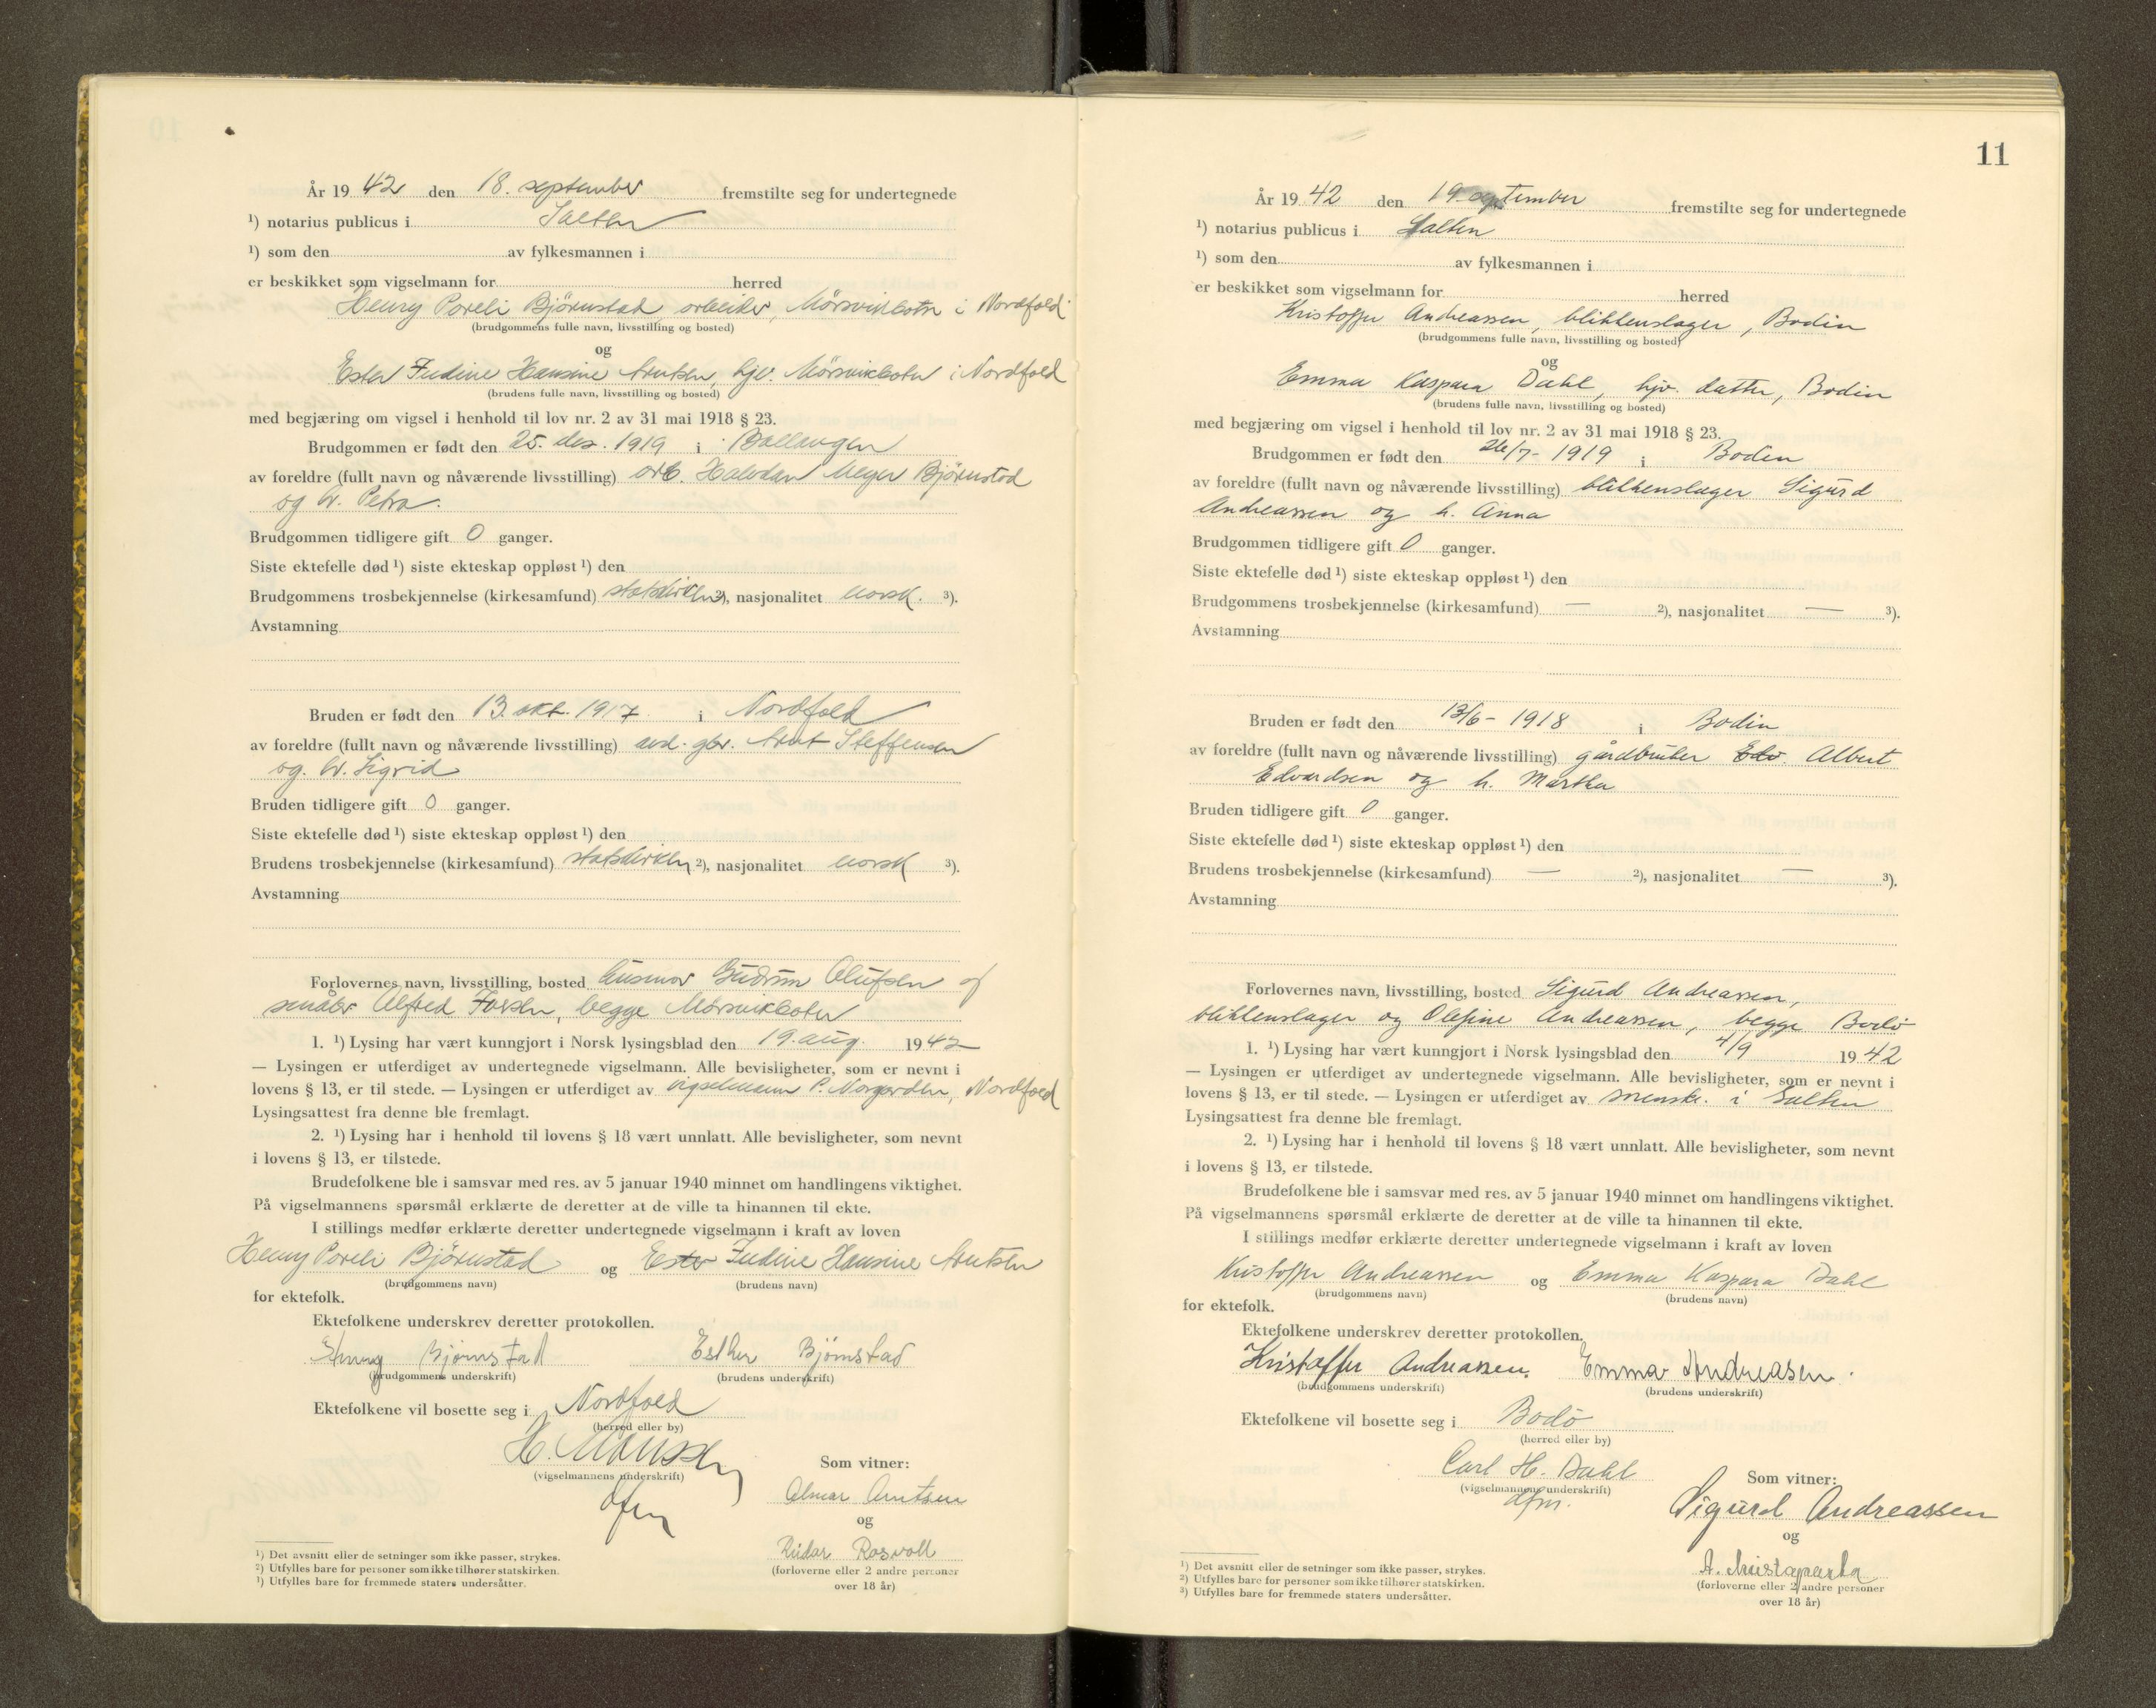 År 19 42 den 18. september fremstilte seg for undertegnede
¹) notarius publicus i Salten
¹) som den av fylkesmannen i
er beskikket som vigselmann for herred
Henry Poreli Bjørnstad, arbeider, Mørsvikbotn i Nordfold
(brudgommens fulle navn, livsstilling og bosted)
og
Ester Judine Hansine Arntsen, hjv. Mørsvikbotn i Nordfold
(brudens fulle navn, livsstilling og bosted)
med begjæring om vigsel i henhold til lov nr. 2 av 31 mai 1918 § 23.
Brudgommen er født den 25. des. 1919 i Ballangen
av foreldre (fullt navn og nåværende livsstilling) arb. Halvdan Meyer Bjørnstad
og h. Petra.
Brudgommen tidligere gift 0 ganger.
Siste ektefelle død ¹) siste ekteskap oppløst ¹) den
Brudgommens trosbekjennelse (kirkesamfund) statskirken ²), nasjonalitet norsk. ³).
Avstamning
Bruden er født den 13. okt. 1917 i Nordfold
av foreldre (fullt navn og nåværende livsstilling) avd. gbr. Arnt Steffensen
og h. Sigrid
Bruden tidligere gift 0 ganger.
Siste ektefelle død ¹) siste ekteskap oppløst ¹) den
Brudens trosbekjennelse (kirkesamfund) statskirken ²), nasjonalitet norsk ³).
Avstamning
Forlovernes navn, livsstilling, bosted husmor Gudrun Olufsen og
småbr Alfred Forsen, begge Mørsvikbotn
1. ¹) Lysing har vært kunngjort i Norsk lysingsblad den 19. aug. 1942
— Lysingen er utferdiget av undertegnede vigselmann. Alle bevisligheter, som er nevnt i
lovens § 13, er til stede. — Lysingen er utferdiget av vigselmann P. Norgården, Nordfold
Lysingsattest fra denne ble fremlagt.
2. ¹) Lysing har i henhold til lovens § 18 vært unnlatt. Alle bevisligheter, som nevnt
i lovens § 13, er tilstede.
Brudefolkene ble i samsvar med res. av 5 januar 1940 minnet om handlingens viktighet.
På vigselmannens spørsmål erklærte de deretter at de ville ta hinannen til ekte.
I stillings medfør erklærte deretter undertegnede vigselmann i kraft av loven
Henry Poreli Bjørnstad og Ester Judine Hansine Arntsen
(brudgommens navn) (brudens navn)
for ektefolk.
Ektefolkene underskrev deretter protokollen.
Henry Bjørnstad Esther Bjørnstad
(brudgommens underskrift) (brudens underskrift)
Ektefolkene vil bosette seg i Nordfold
(herred eller by)
(vigselmannens underskrift)
Som vitner:
Almar Arntsen
og
Reidar Rosvoll
(forloverne eller 2 andre personer
over 18 år)
¹) Det avsnitt eller de setninger som ikke passer, strykes.
²) Utfylles bare for personer som ikke tilhører statskirken.
³) Utfylles bare for fremmede staters undersåtter.
11
År 19 42 den 19. september fremstilte seg for undertegnede
¹) notarius publicus i Salten
¹) som den av fylkesmannen i
er beskikket som vigselmann for herred
Kristoffer Andreassen, blikkenslager, Bodin
(brudgommens fulle navn, livsstilling og bosted)
og
Emma Kaspara Dahl, hjv. datter, Bodin
(brudens fulle navn, livsstilling og bosted)
med begjæring om vigsel i henhold til lov nr. 2 av 31 mai 1918 § 23.
Brudgommen er født den 26/7 - 1919 i Bodin
av foreldre (fullt navn og nåværende livsstilling) blikkenslager Sigurd
Andreassen og h. Anna
Brudgommen tidligere gift 0 ganger.
Siste ektefelle død ¹) siste ekteskap oppløst ¹) den
Brudgommens trosbekjennelse (kirkesamfund) — ²), nasjonalitet — ³).
Avstamning
Bruden er født den 13/6 - 1918 i Bodin
av foreldre (fullt navn og nåværende livsstilling) gårdbruker Edv. Albert
Edvardsen og h. Martha
Bruden tidligere gift 0 ganger.
Siste ektefelle død ¹) siste ekteskap oppløst ¹) den
Brudens trosbekjennelse (kirkesamfund) — ²), nasjonalitet — ³).
Avstamning
Forlovernes navn, livsstilling, bosted Sigurd Andreassen,
blikkenslager og Olefine Andreassen, begge Bodø
1. ¹) Lysing har vært kunngjort i Norsk lysingsblad den 4/9 1942
— Lysingen er utferdiget av undertegnede vigselmann. Alle bevisligheter, som er nevnt i
lovens § 13, er til stede. — Lysingen er utferdiget av sorenskr. i Salten
Lysingsattest fra denne ble fremlagt.
2. ¹) Lysing har i henhold til lovens § 18 vært unnlatt. Alle bevisligheter, som nevnt
i lovens § 13, er tilstede.
Brudefolkene ble i samsvar med res. av 5 januar 1940 minnet om handlingens viktighet.
På vigselmannens spørsmål erklærte de deretter at de ville ta hinannen til ekte.
I stillings medfør erklærte deretter undertegnede vigselmann i kraft av loven
Kristoffer Andreassen og Emma Kaspara Dahl
(brudgommens navn) (brudens navn)
for ektefolk.
Ektefolkene underskrev deretter protokollen.
Kristoffer Andreassen. Emma Andreasen.
(brudgommens underskrift) (brudens underskrift)
Ektefolkene vil bosette seg i Bodø
(herred eller by)
Carl H. Dahl
(vigselmannens underskrift)
dfm.
Som vitner:
Sigurd Andreassen
og
(forloverne eller 2 andre personer
over 18 år)
¹) Det avsnitt eller de setninger som ikke passer, strykes.
²) Utfylles bare for personer som ikke tilhører statskirken.
³) Utfylles bare for fremmede staters undersåtter.